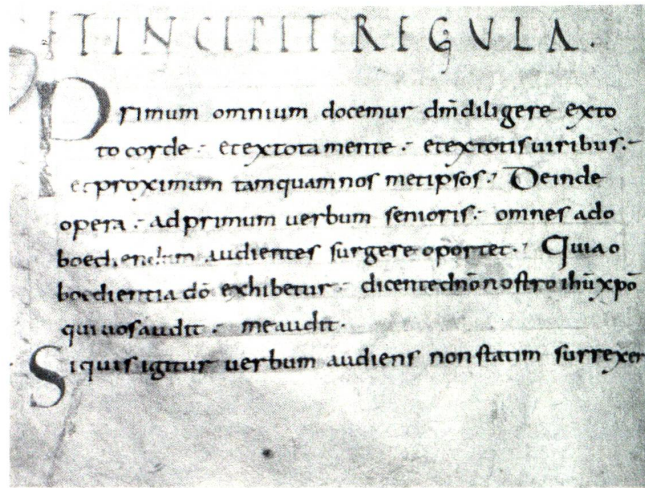 ET INCIPIT REGULA.
Primum omnium docemur dm̄ diligere exto
to corde : etextotamente : etextotisuiribus :
etproximum tamquamnos metipsos : Deinde
opera : adprimum uerbum senioris : omnes ado
boediendum audientes surgere oportet : Quiao
boedientia dō exhibetur : dicentednōnostro ihū xpō
quiuosaudit : meaudit .
Siquisigitur uerbum audiens nonstatim surrexer